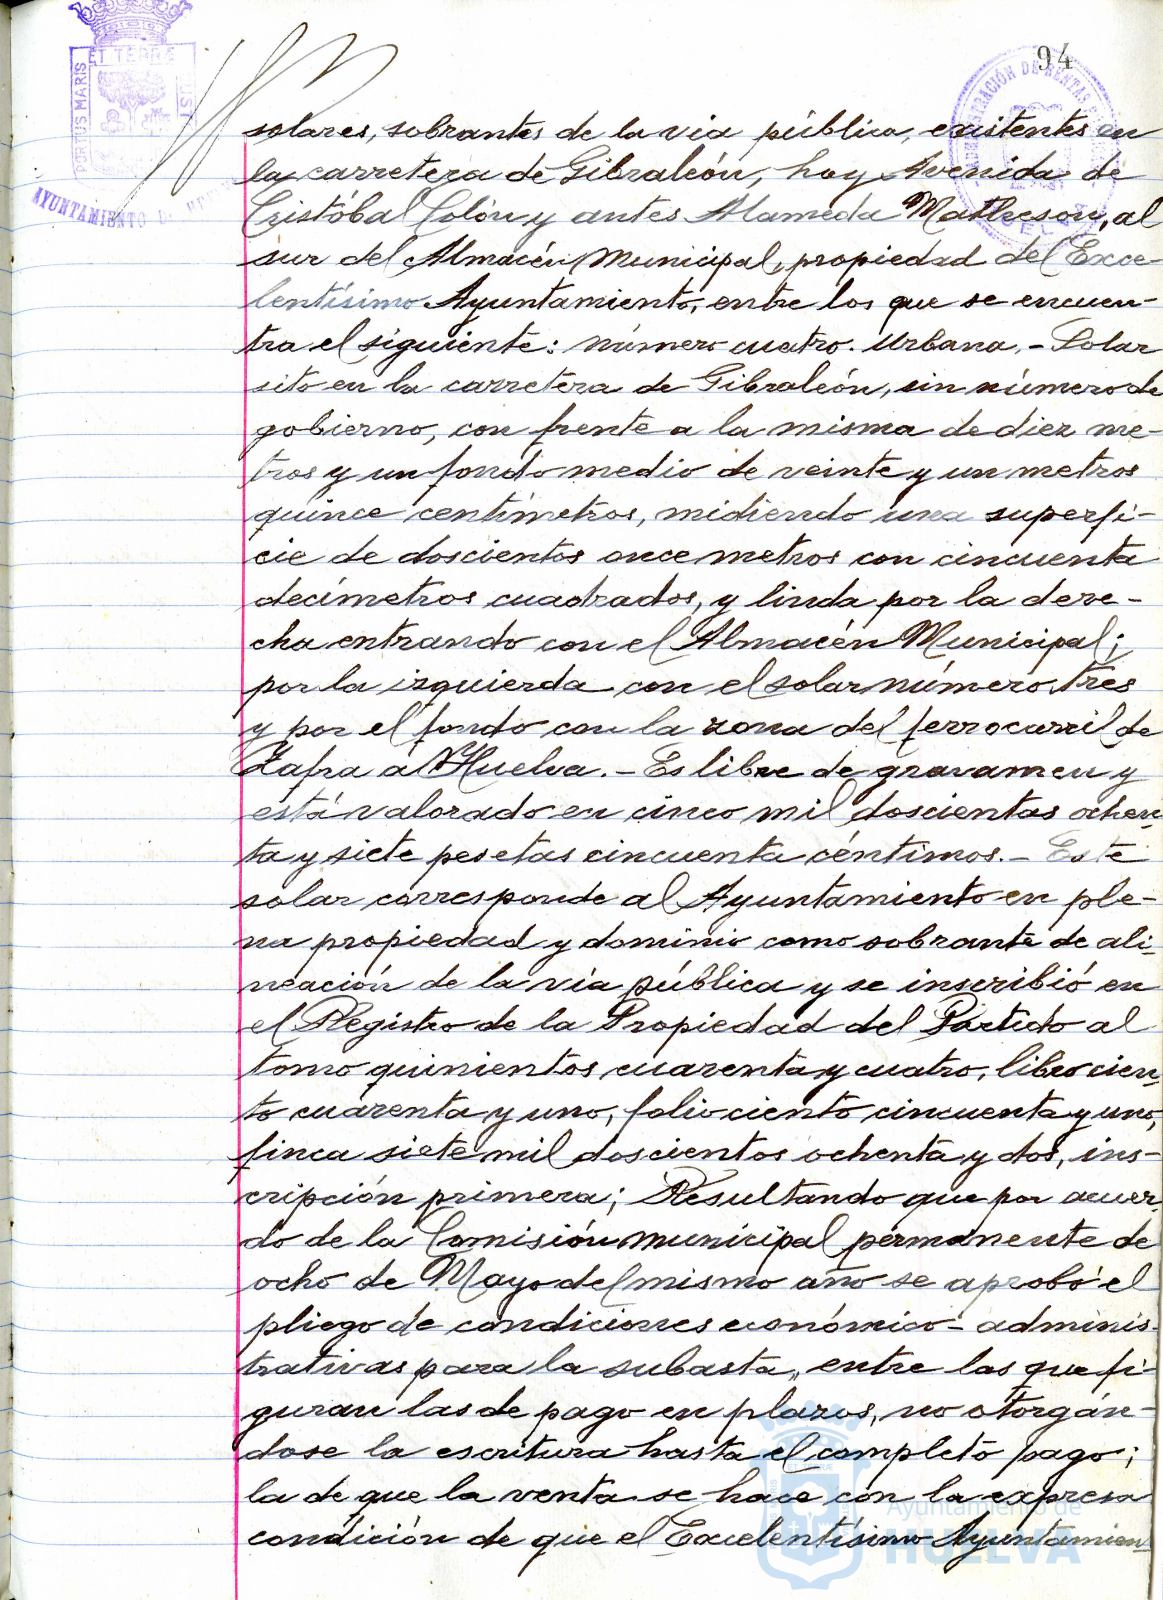 94
PORTUS MARIS ET TERRE CUST
AYUNTAMIENTO DE
solares, sobrantes de la via pública, existentes en
la carretera de Gibraleón, hoy Avenida de
Cristóbal Colón y antes Alameda Matheson, al
sur del Almacén Municipal, propiedad del Exce-
lentísimo Ayuntamiento, entre los que se encuen-
tra el siguiente: número cuatro. Urbana.- Solar
sito en la carretera de Gibraleón, sin número de
gobierno, con frente a la misma de diez me-
tros y un fondo medio de veinte y un metros
quince centímetros, midiendo una superfi-
cie de doscientos once metros con cincuenta
decímetros cuadrados, y linda por la dere-
cha entrando con el Almacén Municipal;
por la izquierda con el solar número tres
y por el fondo con la zona del ferrocarril de
Zafra a Huelva.- Es libre de gravamen y
está valorado en cinco mil doscientas ochen-
ta y siete pesetas cincuenta céntimos.- Este
solar corresponde al Ayuntamiento en ple-
na propiedad y dominio como sobrante de ali-
neación de la vía pública y se inscribió en
el Registro de la Propiedad del Partido al
tomo quinientos cuarenta y cuatro, libro cien-
to cuarenta y uno, folio ciento cincuenta y uno,
finca siete mil doscientos ochenta y dos, ins-
cripción primera; Resultando que por acuer-
do de la Comisión municipal permanente de
ocho de Mayo del mismo año se aprobó el
pliego de condiciones económico-adminis-
trativas para la subasta, entre las que fi-
guran las de pago en plazos, no otorgán-
dose la escritura hasta el completo pago;
la de que la venta se hace con la expresa
condición de que el Excelentísimo Ayuntamien-
Ayuntamiento de
HUELVA